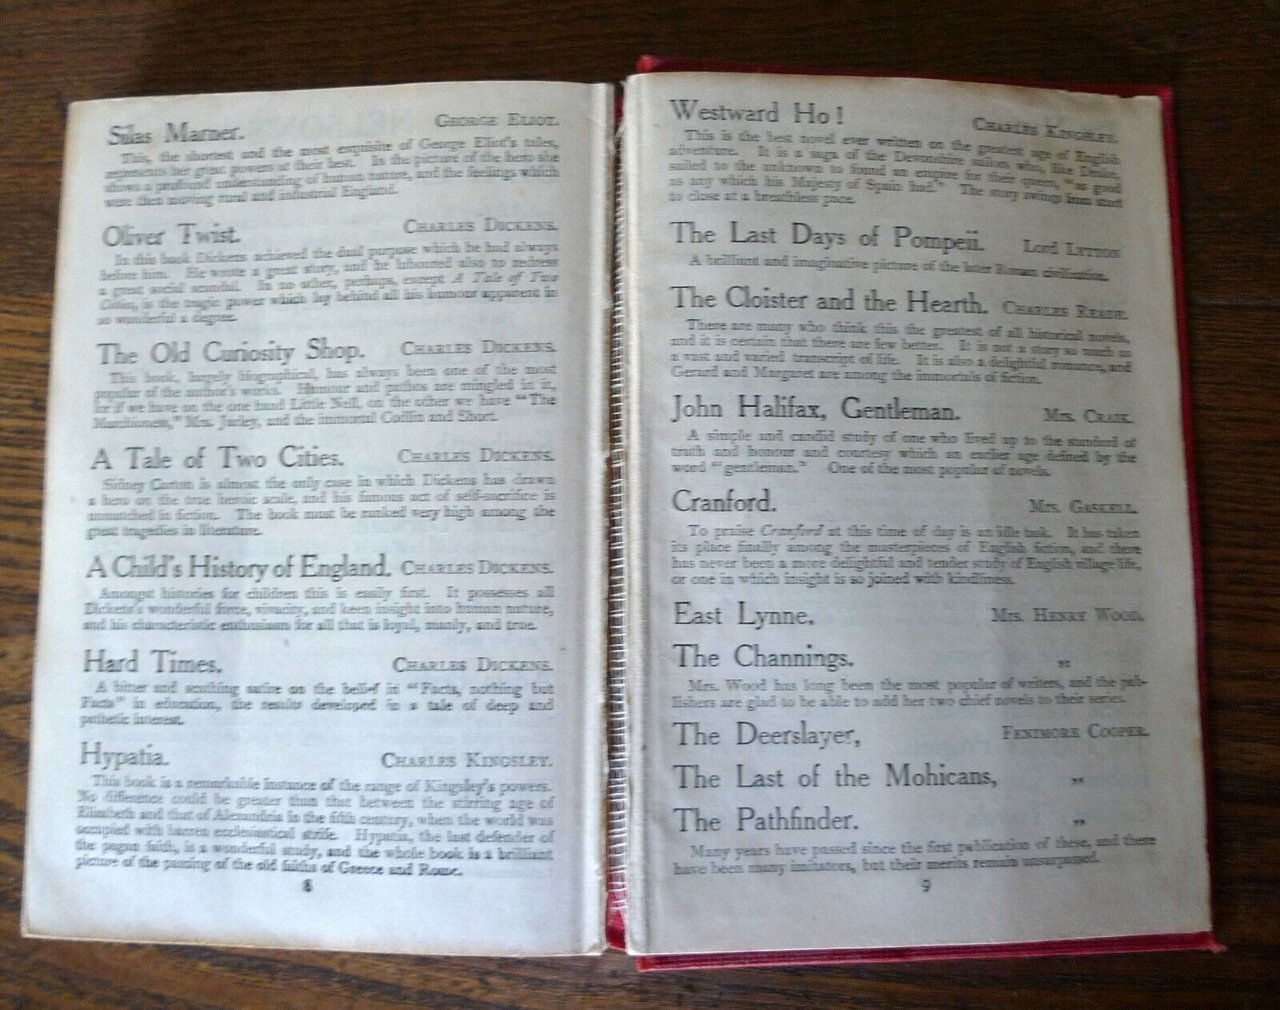 Silas Marner. GEORGE ELIOT.
This, the shortest and the most exquisite of George Eliot's tales,
represents her great powers at their best. In the picture of the hero she
shows a profound understanding of human nature, and the feelings which
were then moving rural and industrial England.
Oliver Twist. CHARLES DICKENS.
In this book Dickens achieved the dual purpose which he had always
before him. He wrote a great story, and he laboured also to redress
a great social scandal. In no other, perhaps, except A Tale of Two
Cities, is the tragic power which lay behind all his humour apparent in
so wonderful a degree.
The Old Curiosity Shop. CHARLES DICKENS.
This book, largely biographical, has always been one of the most
popular of the author's works. Humour and pathos are mingled in it,
for if we have on the one hand Little Nell, on the other we have "The
Marchioness," Mrs. Jarley, and the immortal Codlin and Short.
A Tale of Two Cities. CHARLES DICKENS.
Sidney Carton is almost the only case in which Dickens has drawn
a hero on the true heroic scale, and his famous act of self-sacrifice is
unmatched in fiction. The book must be ranked very high among the
great tragedies in literature.
A Child's History of England. CHARLES DICKENS.
Amongst histories for children this is easily first. It possesses all
Dickens's wonderful force, vivacity, and keen insight into human nature,
and his characteristic enthusiasm for all that is loyal, manly, and true.
Hard Times. CHARLES DICKENS.
A bitter and scathing satire on the belief in "Facts, nothing but
Facts" in education, the results developed in a tale of deep and
pathetic interest.
Hypatia. CHARLES KINGSLEY.
This book is a remarkable instance of the range of Kingsley's powers.
No difference could be greater than that between the stirring age of
Elizabeth and that of Alexandria in the fifth century, when the world was
occupied with barren ecclesiastical strife. Hypatia, the last defender of
the pagan faith, is a wonderful study, and the whole book is a brilliant
picture of the passing of the old faiths of Greece and Rome.
8
Westward Ho! CHARLES KINGSLEY.
This is the best novel ever written on the greatest age of English
adventure. It is a saga of the Devonshire sailors who, like Drake,
sailed to the unknown to found an empire for their queen, "as good
as any which his Majesty of Spain had." The story swings from start
to close at a breathless pace.
The Last Days of Pompeii. LORD LYTTON
A brilliant and imaginative picture of the later Roman civilisation.
The Cloister and the Hearth. CHARLES READE.
There are many who think this the greatest of all historical novels,
and it is certain that there are few better. It is not a story so much as
a vast and varied transcript of life. It is also a delightful romance, and
Gerard and Margaret are among the immortals of fiction.
John Halifax, Gentleman. MRS. CRAIK.
A simple and candid study of one who lived up to the standard of
truth and honour and courtesy which an earlier age defined by the
word "gentleman." One of the most popular of novels.
Cranford. MRS. GASKELL.
To praise Cranford at this time of day is an idle task. It has taken
its place finally among the masterpieces of English fiction, and there
has never been a more delightful and tender study of English village life,
or one in which insight is so joined with kindliness.
East Lynne, MRS. HENRY WOOD.
The Channings. "
Mrs. Wood has long been the most popular of writers, and the pub-
lishers are glad to be able to add her two chief novels to their series.
The Deerslayer, FENIMORE COOPER.
The Last of the Mohicans, "
The Pathfinder. "
Many years have passed since the first publication of these, and there
have been many imitators, but their merits remain unsurpassed.
9